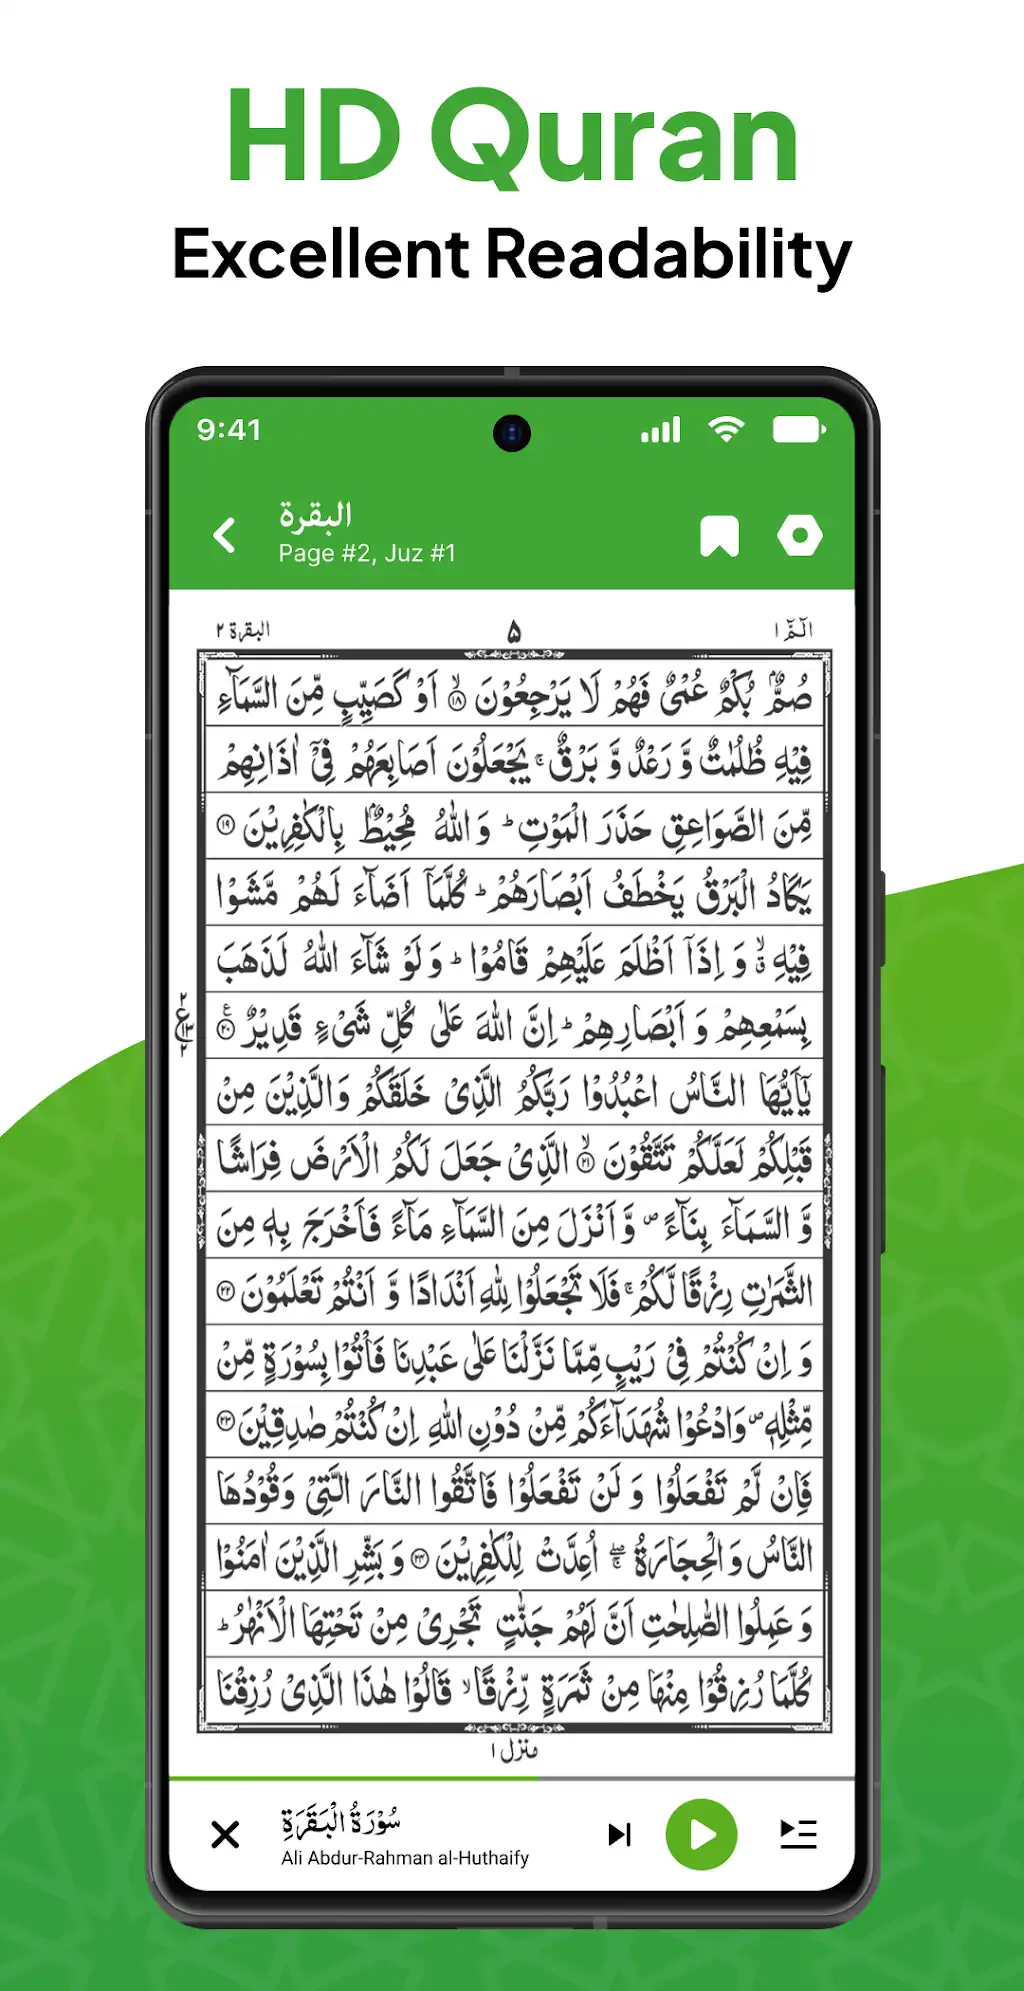 HD Quran
Excellent Readability
9:41
البقرة
Page #2, Juz #1
الٓمّٓ ١ ۵ البقرة ٢
صُمٌّۢ بُكْمٌ عُمْیٌ فَهُمْ لَا یَرْجِعُوْنَ ۙ۱۸ اَوْ كَصَیِّبٍ مِّنَ السَّمَآءِ
فِیْهِ ظُلُمٰتٌ وَّ رَعْدٌ وَّ بَرْقٌ ۚ یَجْعَلُوْنَ اَصَابِعَهُمْ فِیْۤ اٰذَانِهِمْ
مِّنَ الصَّوَاعِقِ حَذَرَ الْمَوْتِ ؕ وَ اللهُ مُحِیْطٌۢ بِالْكٰفِرِیْنَ ۱۹
یَكَادُ الْبَرْقُ یَخْطَفُ اَبْصَارَهُمْ ؕ كُلَّمَاۤ اَضَآءَ لَهُمْ مَّشَوْا
فِیْهِ ۙۗ وَ اِذَاۤ اَظْلَمَ عَلَیْهِمْ قَامُوْا ؕ وَ لَوْ شَآءَ اللهُ لَذَهَبَ
بِسَمْعِهِمْ وَ اَبْصَارِهِمْ ؕ اِنَّ اللهَ عَلٰی كُلِّ شَیْءٍ قَدِیْرٌ ۲۰ ع
٢
ع
١٣
٢
یٰۤاَیُّهَا النَّاسُ اعْبُدُوْا رَبَّكُمُ الَّذِیْ خَلَقَكُمْ وَ الَّذِیْنَ مِنْ
قَبْلِكُمْ لَعَلَّكُمْ تَتَّقُوْنَ ۙ۲۱ الَّذِیْ جَعَلَ لَكُمُ الْاَرْضَ فِرَاشًا
وَّ السَّمَآءَ بِنَآءً ۪ وَّ اَنْزَلَ مِنَ السَّمَآءِ مَآءً فَاَخْرَجَ بِهٖ مِنَ
الثَّمَرٰتِ رِزْقًا لَّكُمْ ۚ فَلَا تَجْعَلُوْا لِلّٰهِ اَنْدَادًا وَّ اَنْتُمْ تَعْلَمُوْنَ ۲۲
وَ اِنْ كُنْتُمْ فِیْ رَیْبٍ مِّمَّا نَزَّلْنَا عَلٰی عَبْدِنَا فَاْتُوْا بِسُوْرَةٍ مِّنْ
مِّثْلِهٖ ۪ وَادْعُوْا شُهَدَآءَكُمْ مِّنْ دُوْنِ اللهِ اِنْ كُنْتُمْ صٰدِقِیْنَ ۲۳
فَاِنْ لَّمْ تَفْعَلُوْا وَ لَنْ تَفْعَلُوْا فَاتَّقُوا النَّارَ الَّتِیْ وَقُوْدُهَا
النَّاسُ وَ الْحِجَارَةُ ۖۚ اُعِدَّتْ لِلْكٰفِرِیْنَ ۲۴ وَ بَشِّرِ الَّذِیْنَ اٰمَنُوْا
وَ عَمِلُوا الصّٰلِحٰتِ اَنَّ لَهُمْ جَنّٰتٍ تَجْرِیْ مِنْ تَحْتِهَا الْاَنْهٰرُ ؕ
كُلَّمَا رُزِقُوْا مِنْهَا مِنْ ثَمَرَةٍ رِّزْقًا ۙ قَالُوْا هٰذَا الَّذِیْ رُزِقْنَا
منزل ١
سُوْرَةُ الْبَقَرَةِ
Ali Abdur-Rahman al-Huthaify